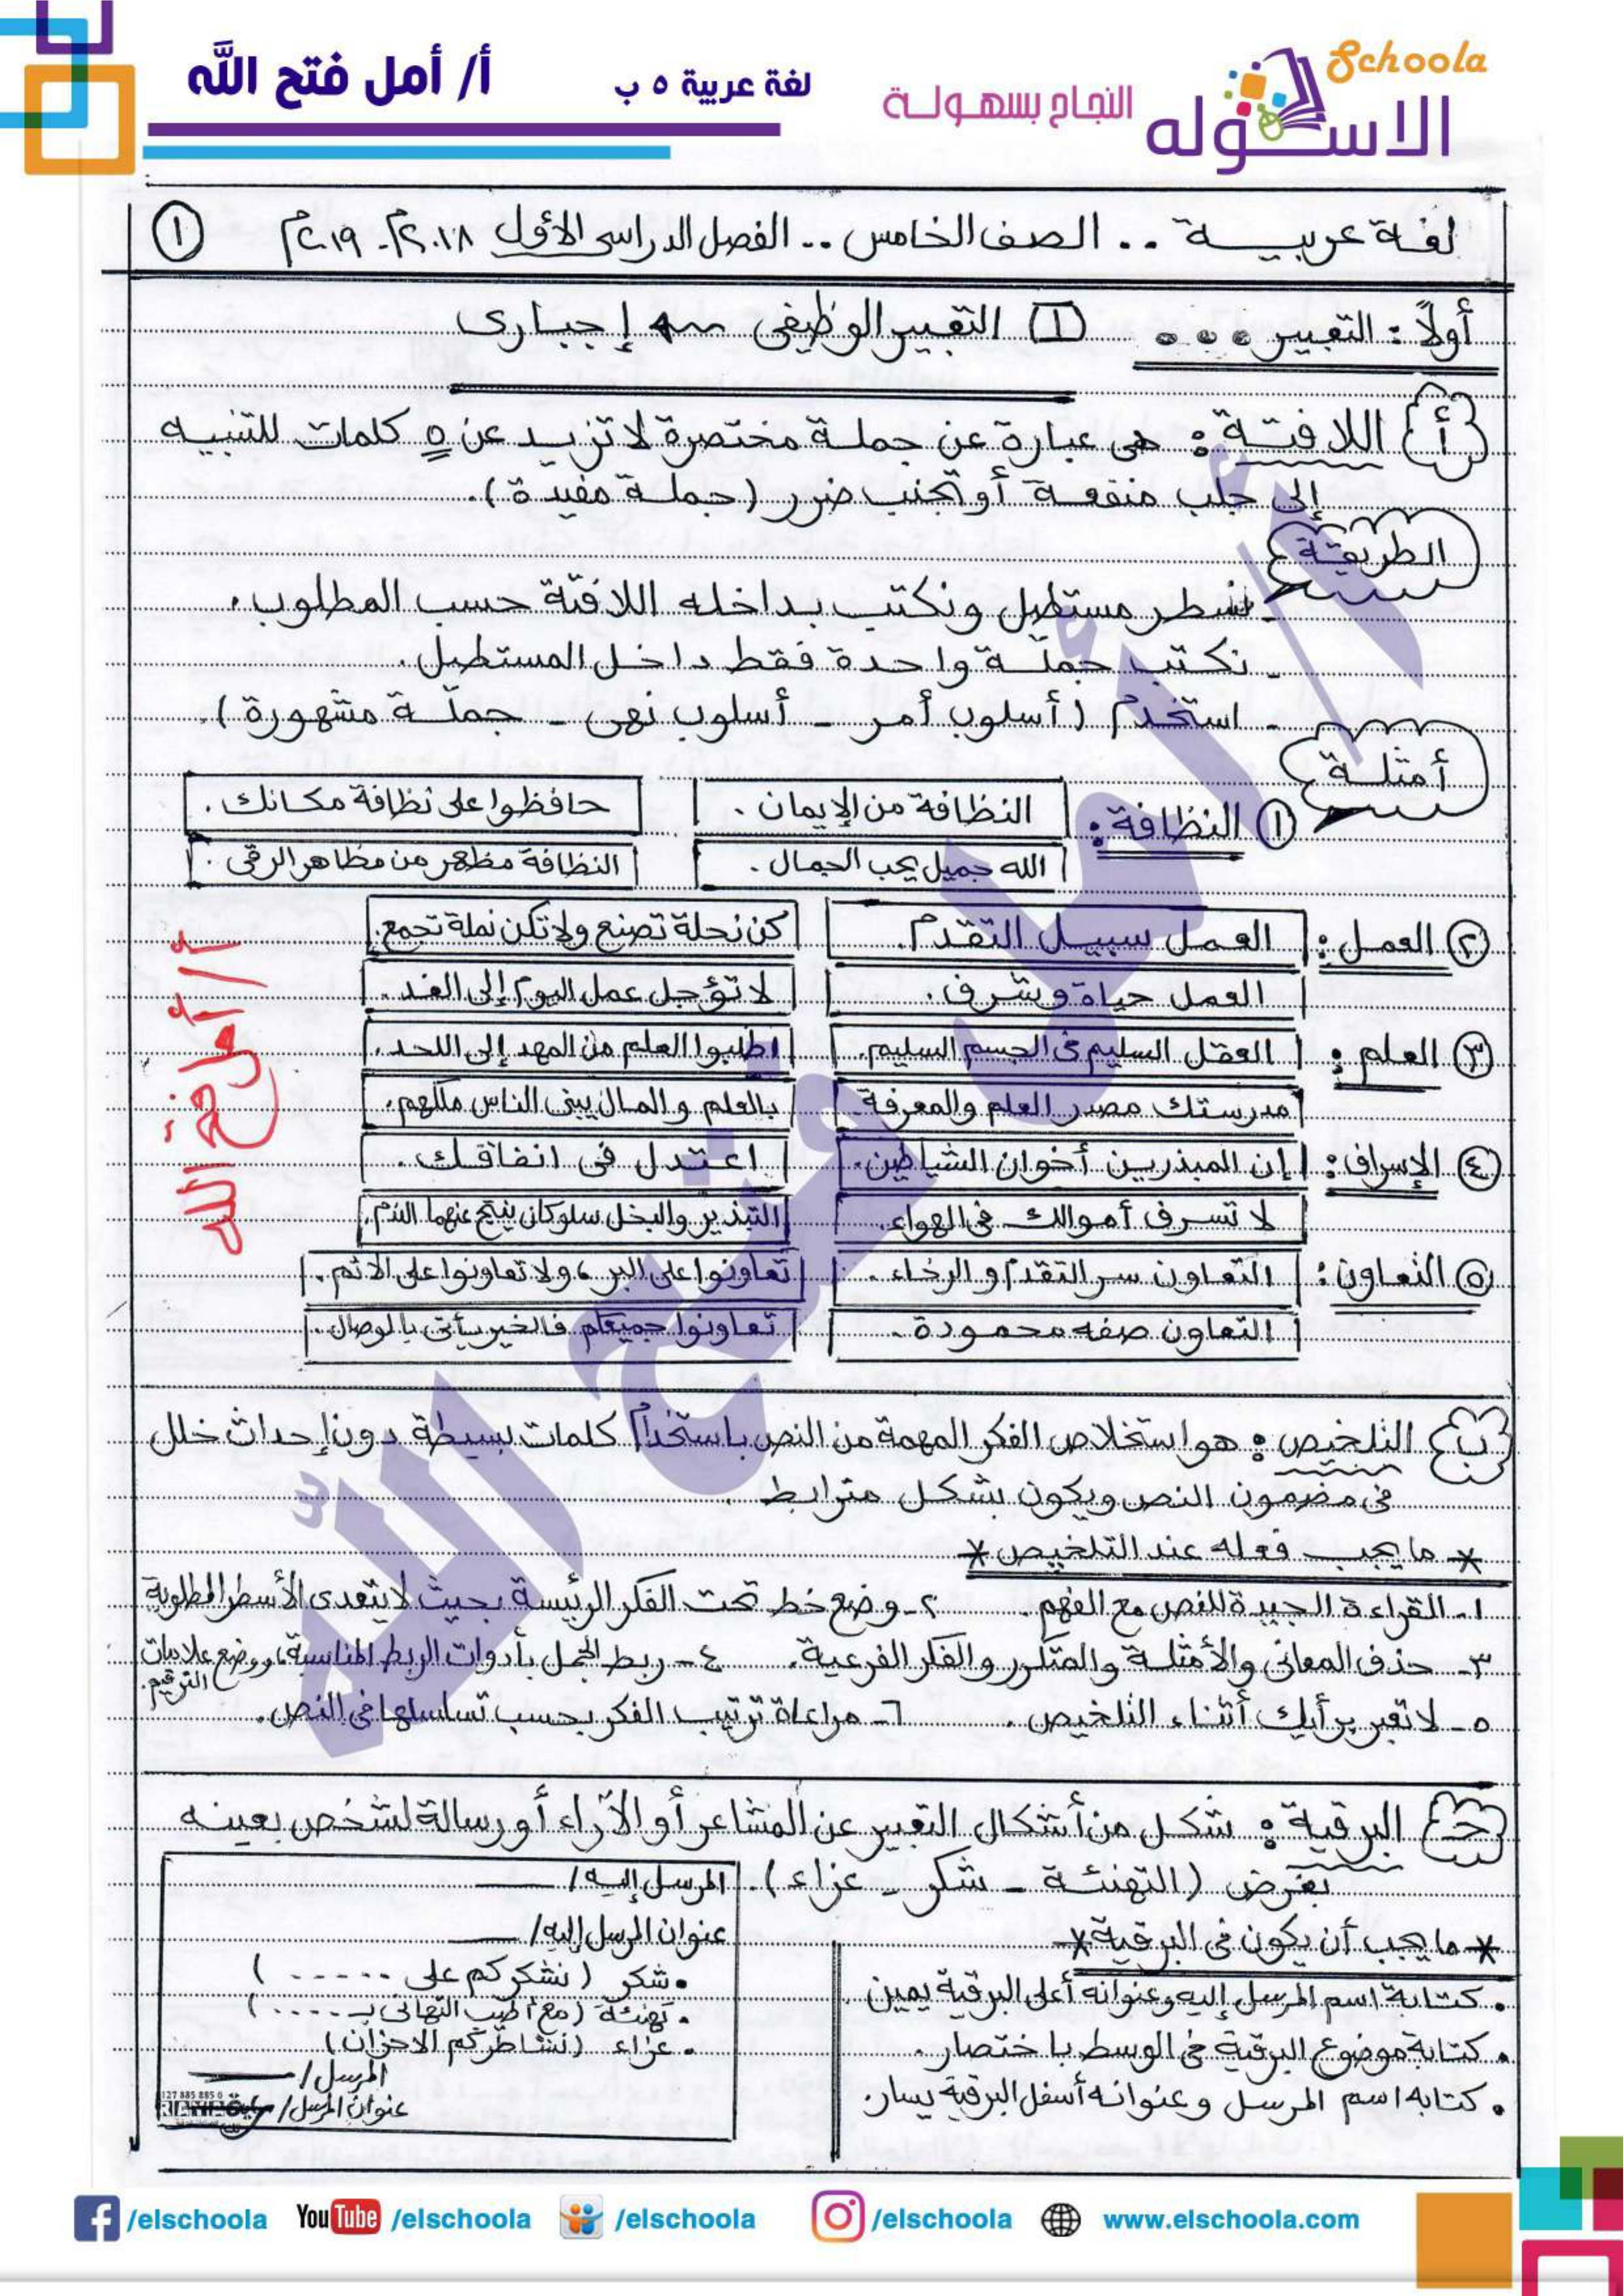 Schoola
الاسكوله
النجاح بسهولة
لغة عربية ٥ ب
أ/ أمل فتح الله
لغة عربية .. الصف الخامس .. الفصل الدراسى الأول ٢٠١٨م - ٢٠١٩م ①
أولاً : التعبير ... [1] التعبير الوظيفى ← إجبارى
{أ} اللافتة : هى عبارة عن جملة مختصرة لا تزيد عن ٥ كلمات للتنبيه
إلى جلب منفعة أو تجنب ضرر (جملة مفيدة).
الطريقة
- نسطر مستطيل ونكتب بداخله اللافتة حسب المطلوب.
- نكتب جملة واحدة فقط داخل المستطيل.
- استخدم (أسلوب أمر - أسلوب نهى - جملة مشهورة).
أمثلة
① النظافة : النظافة من الإيمان . حافظوا على نظافة مكانك .
الله جميل يحب الجمال . النظافة مظهر من مظاهر الرقى .
② العمل : العمل سبيل التقدم . كن نحلة تصنع ولا تكن نملة تجمع.
العمل حياة وشرف . لا تؤجل عمل اليوم إلى الغد .
③ العلم : العقل السليم فى الجسم السليم. اطلبوا العلم من المهد إلى اللحد .
مدرستك مصدر العلم والمعرفة بالعلم والمال يبنى الناس ملكهم.
④ الإسراف : إن المبذرين أخوان الشياطين. اعتدل فى انفاقك .
لا تسرف أموالك فى الهواء. التبذير والبخل سلوكان ينتج عنهما الندم.
⑤ التعاون : التعاون سر التقدم والرخاء . تعاونوا على البر ، ولا تعاونوا على الاثم .
التعاون صفه محمودة . تعاونوا جميعكم فالخير يأتى بالوصال .
أ/ أمل فتح الله
{ب} التلخيص : هو استخلاص الفكر المهمة من النص باستخدام كلمات بسيطة دون إحداث خلل
فى مضمون النص ويكون بشكل مترابط .
* ما يجب فعله عند التلخيص *
١- القراءة الجيدة للنص مع الفهم . ٢- وضع خط تحت الفكر الرئيسة بحيث لا يتعدى الأسطر المطلوبة
٣- حذف المعانى والأمثلة والمتكرر والفكر الفرعية. ٤- ربط الجمل بأدوات الربط المناسبة، ووضع علامات الترقيم.
٥- لا تعبر برأيك أثناء التلخيص . ٦- مراعاة ترتيب الفكر بحسب تسلسلها فى النص .
{جـ} البرقية : شكل من أشكال التعبير عن المشاعر أو الآراء أو رسالة لشخص بعينه
بغرض (التهنئة - شكر - عزاء) .
* ما يجب أن يكون فى البرقية *
• كتابة اسم المرسل إليه وعنوانه أعلى البرقية يمين .
• كتابة موضوع البرقية فى الوسط باختصار .
• كتابه اسم المرسل وعنوانه أسفل البرقية يسار.
المرسل إليه /
عنوان المرسل إليه /
• شكر (نشكركم على ......)
• تهنئة (مع أطيب التهانى بـ .....)
• عزاء (نشاطركم الاحزان)
المرسل /
عنوان المرسل /
أ/ أمل فتح الله
/elschoola YouTube /elschoola /elschoola /elschoola www.elschoola.com